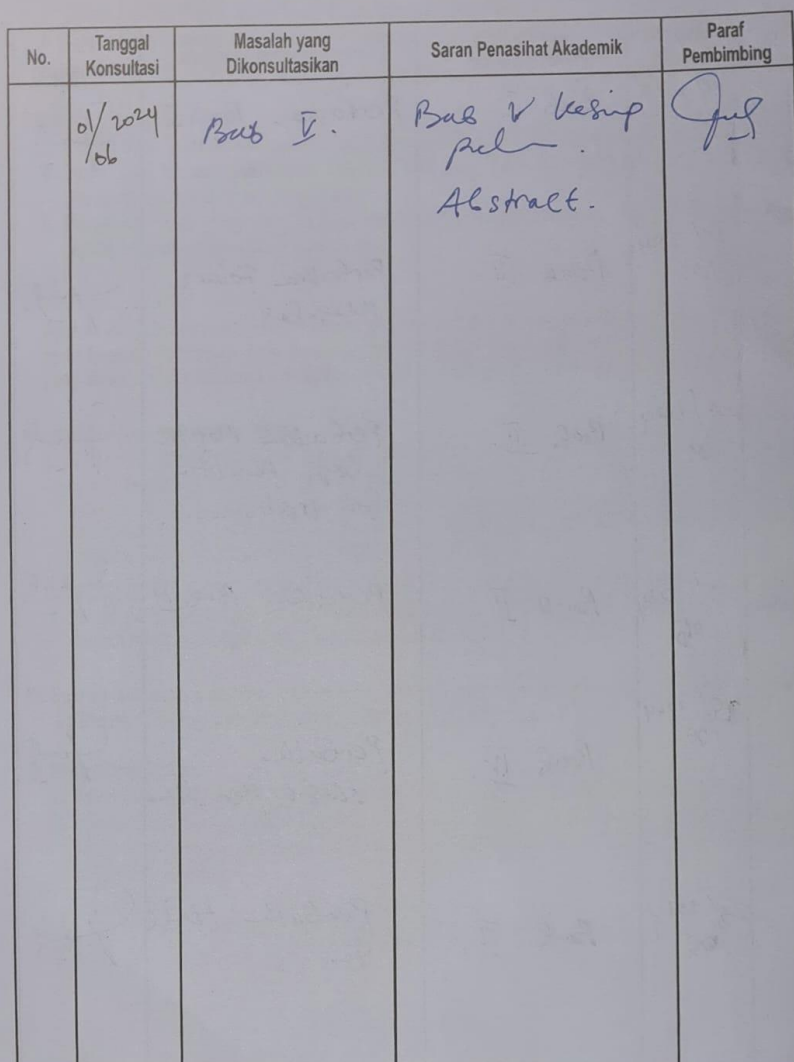 No.
Tanggal
Konsultasi
Masalah yang
Dikonsultasikan
Saran Penasihat Akademik
Paraf
Pembimbing
01/06 2024
Bab V.
Bab V
Abstract.